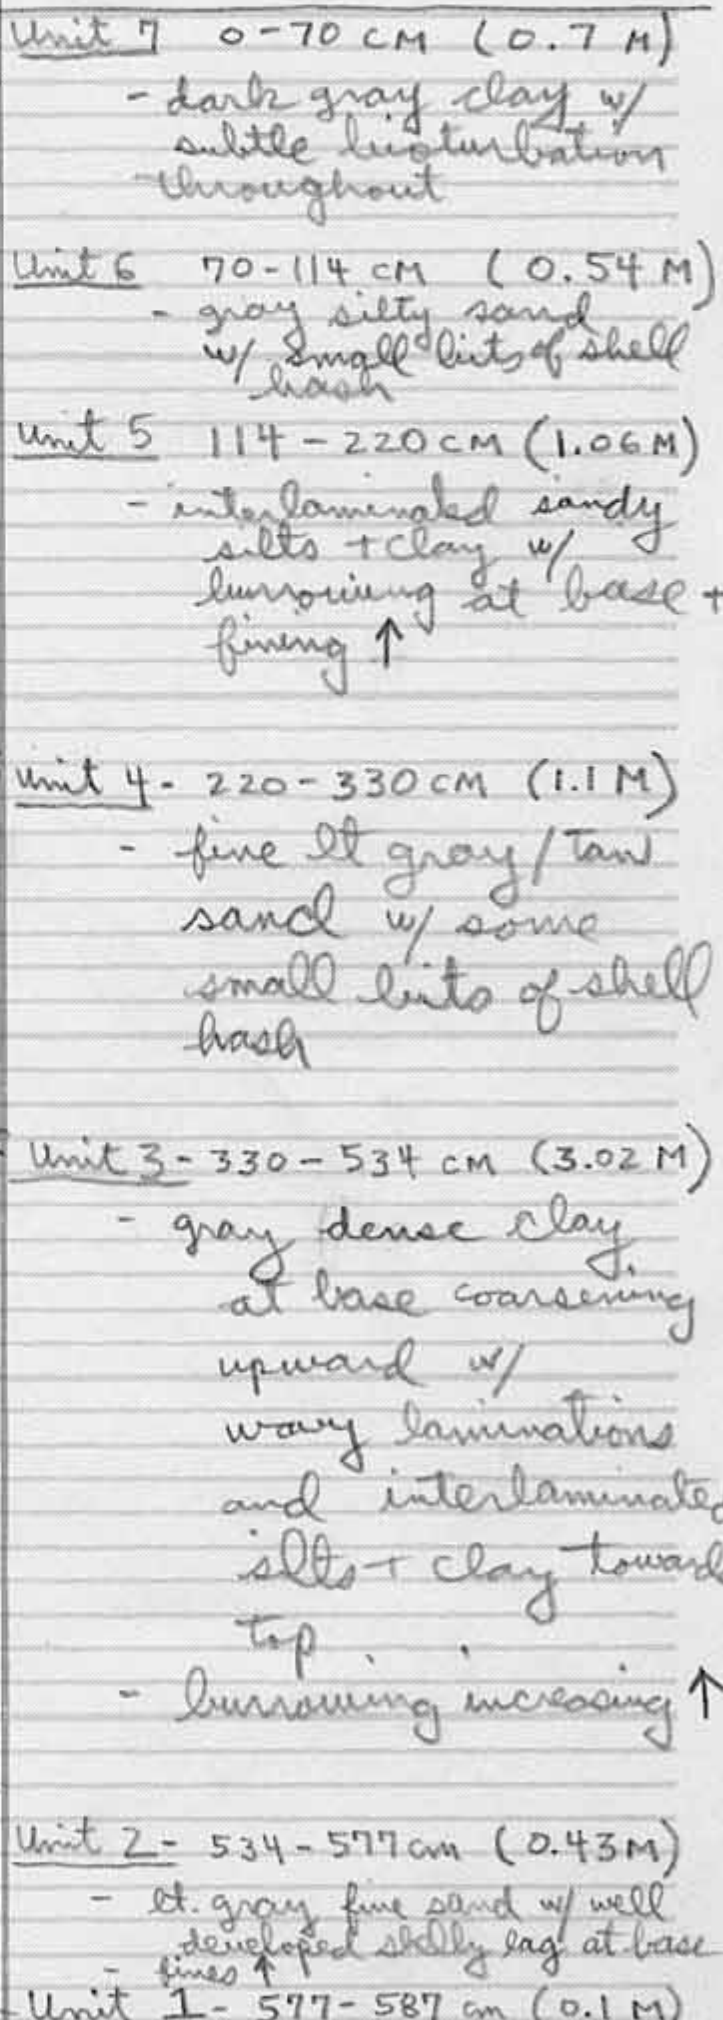 Unit 7 0-70 CM (0.7 M)
- dark gray clay w/
subtle bioturbation
throughout
Unit 6 70-114 CM (0.54 M)
- gray silty sand
w/ small bits of shell
hash
Unit 5 114-220 CM (1.06 M)
- interlaminated sandy
silts + clay w/
burrowing at base +
fining ↑
Unit 4 - 220-330 CM (1.1 M)
- fine lt gray/tan
sand w/ some
small bits of shell
hash
Unit 3 - 330-534 CM (3.02 M)
- gray dense clay
at base coarsening
upward w/
wavy laminations
and interlaminated
silts + clay toward
top
- burrowing increasing ↑
Unit 2 - 534-577 cm (0.43 M)
- lt. gray fine sand w/ well
developed shelly lag at base
- fines ↑
Unit 1 - 577-587 cm (0.1 M)